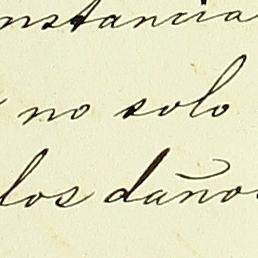 nstancia
no solo
los daños